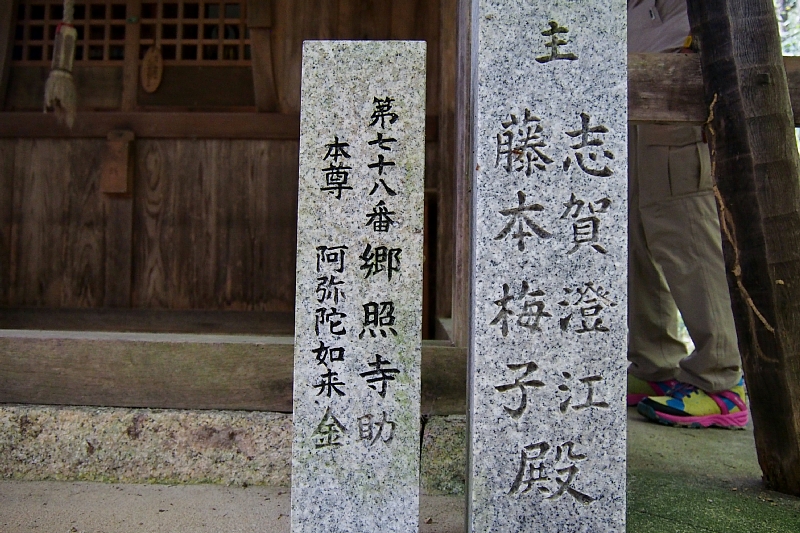 第七十八番 郷照寺 助
本尊 阿弥陀如来 金
主
志賀澄江
藤本梅子
殿